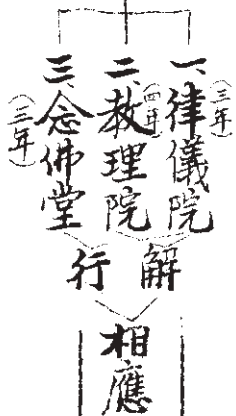 一、律儀院（三年）
二、教理院（四年）
三、念佛堂（三年）
解行
相應